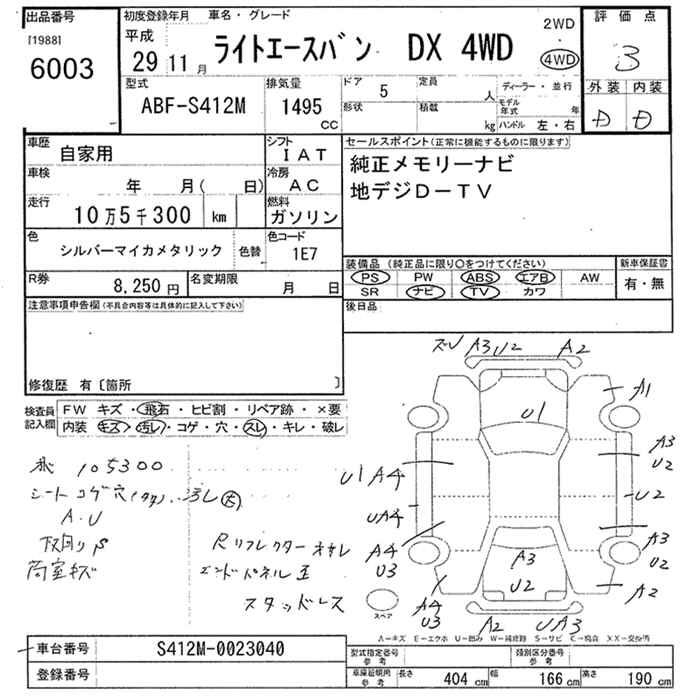 出品番号 初度登録年月 車名・グレード 2WD 評価点
[1988] 平成 ・
6003 29 11 月 ライトエースバン DX 4WD 4WD 3
型式 排気量 ドア 5 定員 人 ディーラー・並行 外装 内装
ABF-S412M 1495 CC 形状 積載 kg モデル年式 年 D D
ハンドル 左・右
車歴 自家用 シフト IAT セールスポイント(正常に機能するものに限ります)
車検 年 月( 日) 冷房 AC 純正メモリーナビ
走行 10万5千300 km 燃料 ガソリン 地デジD-TV
色 シルバーマイカメタリック 色替 色コード 1E7
装備品 (純正品に限り○をつけてください) 新車保証書
R券 8,250 円 名変期限 月 日 PS PW ABS エアB AW 有・無
SR ナビ TV カワ
注意事項申告欄(不具合内容等は具体的に記入して下さい) 後日品
修復歴 有〔箇所 〕
検査員記入欄 FW キズ・飛石・ヒビ割・リペア跡・×要
内装 キズ・汚レ・コゲ・穴・スレ・キレ・破レ
105300
シート コゲ穴
A.U
下回りS
荷室キズ
Rリフレクター
エンドパネル
スタッドレス
A3 U2 A2
A1
U1
A3
U2
U1 A4
U2
UA4
A4
U3
A3
U2
A3
U2
A2
A4
U3
A2 UA3
スペア
A-キズ E-エクボ U-凹み W-補修跡 S-サビ C-腐食 XX-交換済
車台番号 S412M-0023040 型式指定番号 参考 類別区分番号 参考
登録番号 車庫証明用 参考 長さ 404 cm 幅 166 cm 高さ 190 cm